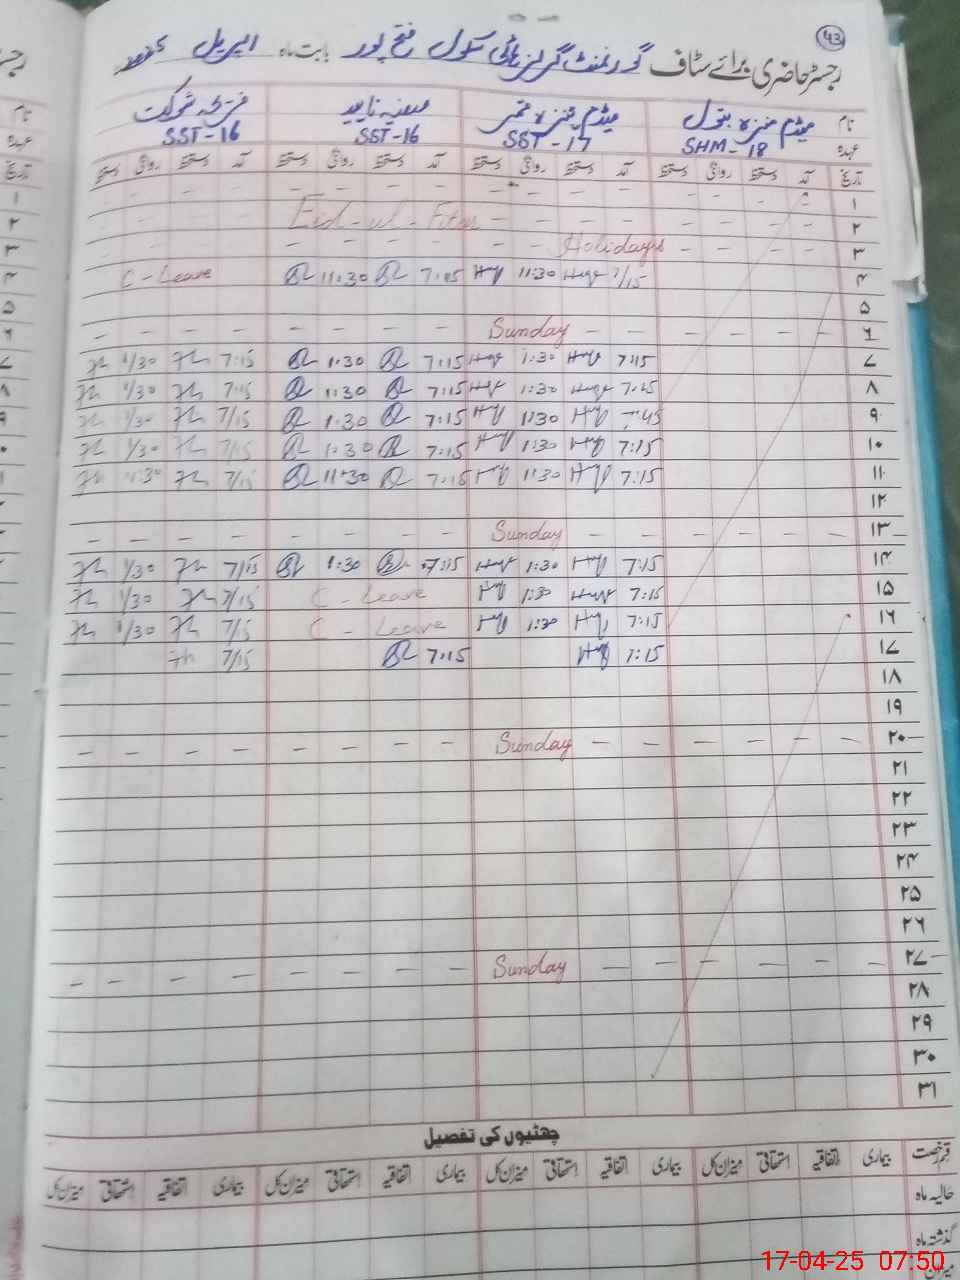 ۴۳
رجسٹر حاضری برائے سٹاف گورنمنٹ گرلز ہائی سکول فتح پور بابت ماہ اپریل
نام میڈم بتول میڈم
عہدہ SHM-18 SST-17 SST-16 SST-16
تاریخ آمد دستخط روانگی دستخط آمد دستخط روانگی دستخط آمد دستخط روانگی دستخط آمد دستخط روانگی دستخط
۱
۲ Eid-ul-Fitar
۳ Holidays
۴ 7/15 11:30 7:15 11:30 C-Leave
۵
۶ Sunday
۷ 7:15 1:30 7:15 1:30 7:15 1/30
۸ 7:15 1:30 7:15 1:30 7:15 1/30
۹ 7:45 1:30 7:15 1:30 7/15 1/30
۱۰ 7:15 1:30 7:15 1:30 7/15 1/30
۱۱ 7:15 11:30 7:15 11:30 7/15 11:30
۱۲
۱۳ Sunday
۱۴ 7:15 1:30 7:15 1:30 7/15 1/30
۱۵ 7:15 1:30 C-Leave 7/15 1/30
۱۶ 7:15 1:30 C-Leave 7/15 1/30
۱۷ 7:15 7:15 7/15
۱۸
۱۹
۲۰ Sunday
۲۱
۲۲
۲۳
۲۴
۲۵
۲۶
۲۷ Sunday
۲۸
۲۹
۳۰
۳۱
چھٹیوں کی تفصیل
قسم رخصت بیماری اتفاقیہ استحقاقی میزان کل بیماری اتفاقیہ استحقاقی میزان کل بیماری اتفاقیہ استحقاقی میزان کل بیماری اتفاقیہ استحقاقی میزان کل
حالیہ ماہ
گذشتہ ماہ
میزان
17-04-25 07:50